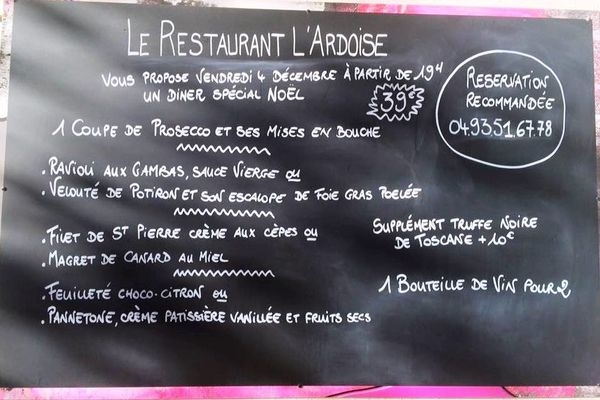 LE RESTAURANT L'ARDOISE
VOUS PROPOSE VENDREDI 4 DÉCEMBRE À PARTIR DE 19H
UN DINER SPÉCIAL NOËL
39€
RESERVATION
RECOMMANDÉE
04.93.51.67.78
1 COUPE DE PROSECCO ET SES MISES EN BOUCHE
. RAVIOLI AUX GAMBAS, SAUCE VIERGE OU
. VELOUTÉ DE POTIRON ET SON ESCALOPE DE FOIE GRAS POELÉE
. FILET DE ST PIERRE CRÈME AUX CÈPES OU
. MAGRET DE CANARD AU MIEL
SUPPLÉMENT TRUFFE NOIRE
DE TOSCANE +10€
. FEUILLETÉ CHOCO-CITRON OU
. PANNETONE, CRÈME PATISSIÈRE VANILLÉE ET FRUITS SECS
1 BOUTEILLE DE VIN POUR 2